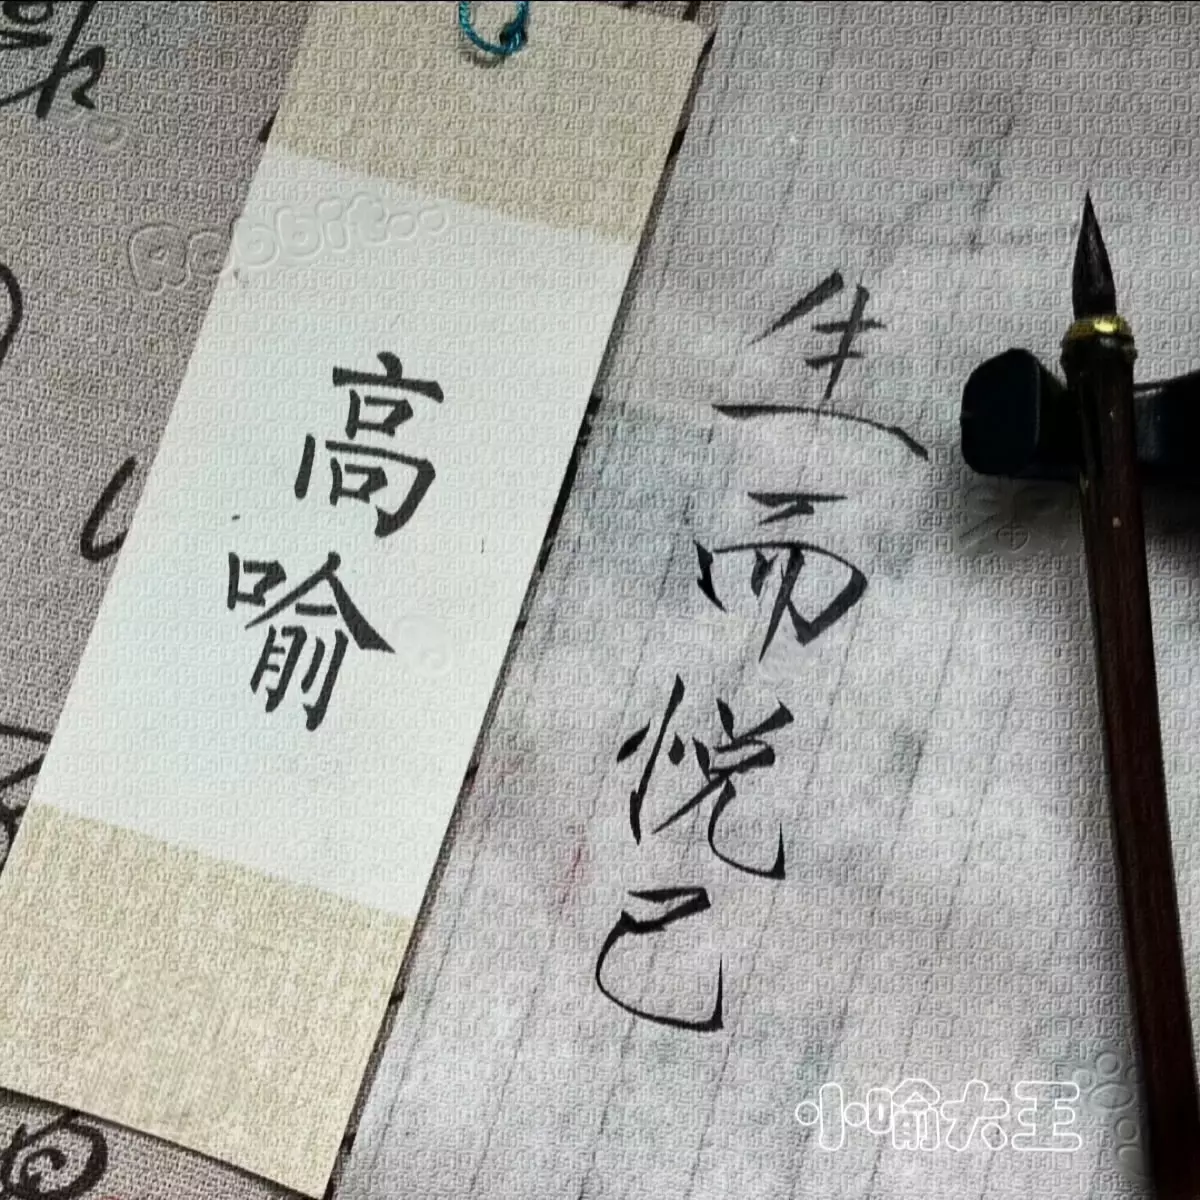 Rabbit...
高喻
生而悦己
小喻大王